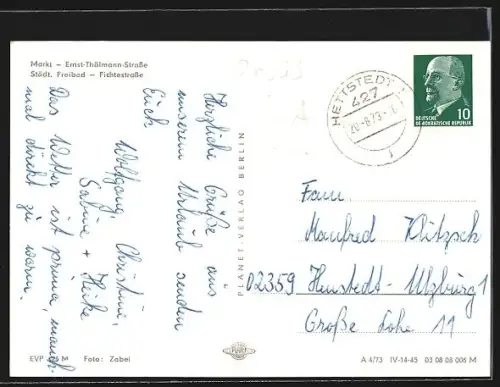 Markt – Ernst-Thälmann-Straße
Städt. Freibad – Fichtestraße
Herzliche Grüße aus
unserem Urlaub senden
Euch
Wolfgang, Christine,
Sabine + Heike
Das Wetter ist prima, manch-
mal direkt zu warm.
EVP M Foto: Zabel
PLANET-VERLAG BERLIN
HETTSTEDT
427
-8.73-
DEUTSCHE 10
DEMOKRATISCHE REPUBLIK
Fam.
Manfred Klitzsch
02359 Henstedt-Ulzburg 1
Große Lohe 11
A 4/73 IV-14-45 03 08 08 006 M